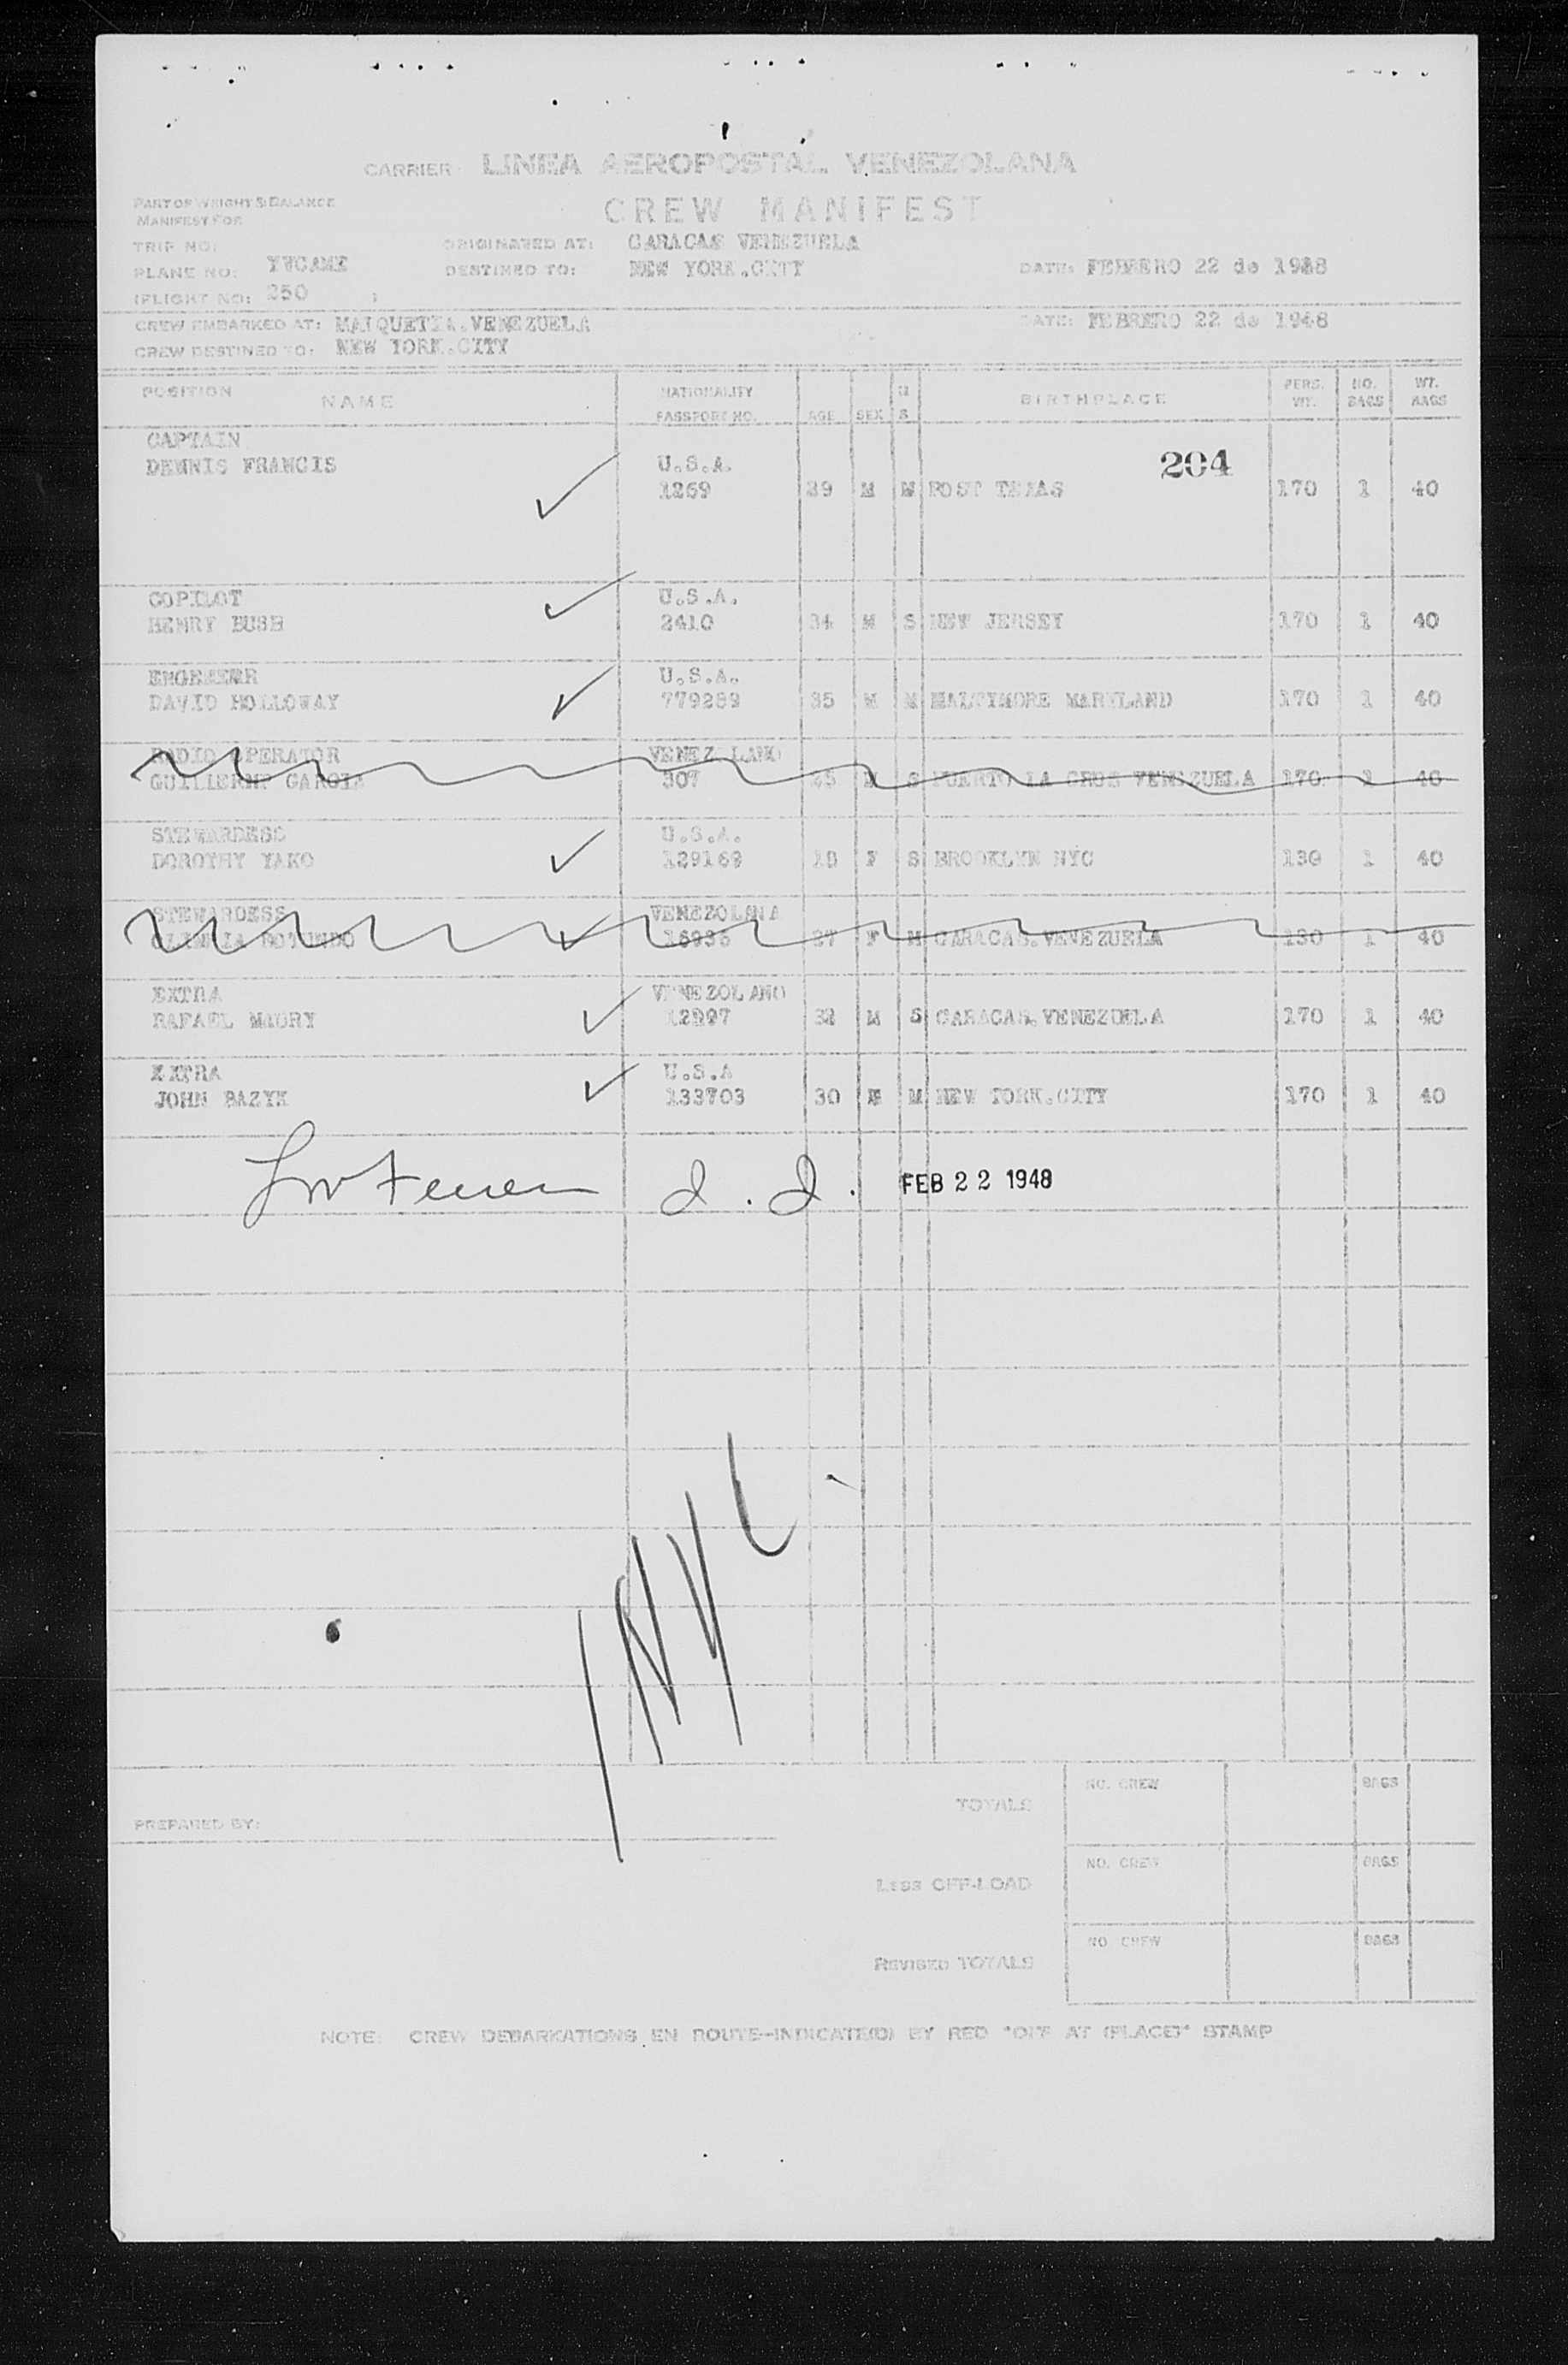 CARRIER LINEA AEROPOSTAL VENEZOLANA
PART OF WEIGHT & BALANCE
MANIFEST FOR
CREW MANIFEST
TRIP NO:
ORIGINATED AT: CARACAS VENEZUELA
PLANE NO:
DESTINED TO: NEW YORK.CITY
DATE: FEBRERO 22 de 1948
(FLIGHT NO: 250
CREW EMBARKED AT: MAIQUETIA.VENEZUELA
DATE: FEBRERO 22 de 1948
CREW DESTINED TO: NEW YORK.CITY
POSITION NAME NATIONALITY PASSPORT NO. AGE SEX M S BIRTHPLACE PERS. WT. NO. BAGS WT. BAGS
CAPTAIN
DENNIS FRANCIS U.S.A. 204
1269 39 M M POST TEXAS 170 1 40
COPILOT U.S.A.
HENRY BUSH 2410 34 M S NEW JERSEY 170 1 40
U.S.A.
DAVID HOLLOWAY 779289 35 M M MARYLAND 170 1 40
RADIO OPERATOR
GARCIA 307 25 M S PUERTO LA VENEZUELA 170 1 40
STEWARDESS U.S.A.
DOROTHY YAKO 129169 F S BROOKLYN NYC 130 1 40
STEWARDESS VENEZOLANA
ROTUNDO 27 F M CARACAS.VENEZUELA 130 1 40
EXTRA VENEZOLANO
RAFAEL MAURY 12997 32 M S CARACAS.VENEZUELA 170 1 40
EXTRA U.S.A
JOHN BAZYK 133703 30 M M NEW YORK.CITY 170 1 40
FEB 22 1948
NO. CREW BAGS
TOTALS
PREPARED BY:
NO. CREW BAGS
LESS OFF-LOAD
NO CREW BAGS
REVISED TOTALS
NOTE: CREW DEBARKATIONS EN ROUTE—INDICATE(D) BY RED "OFF AT (PLACE)" STAMP